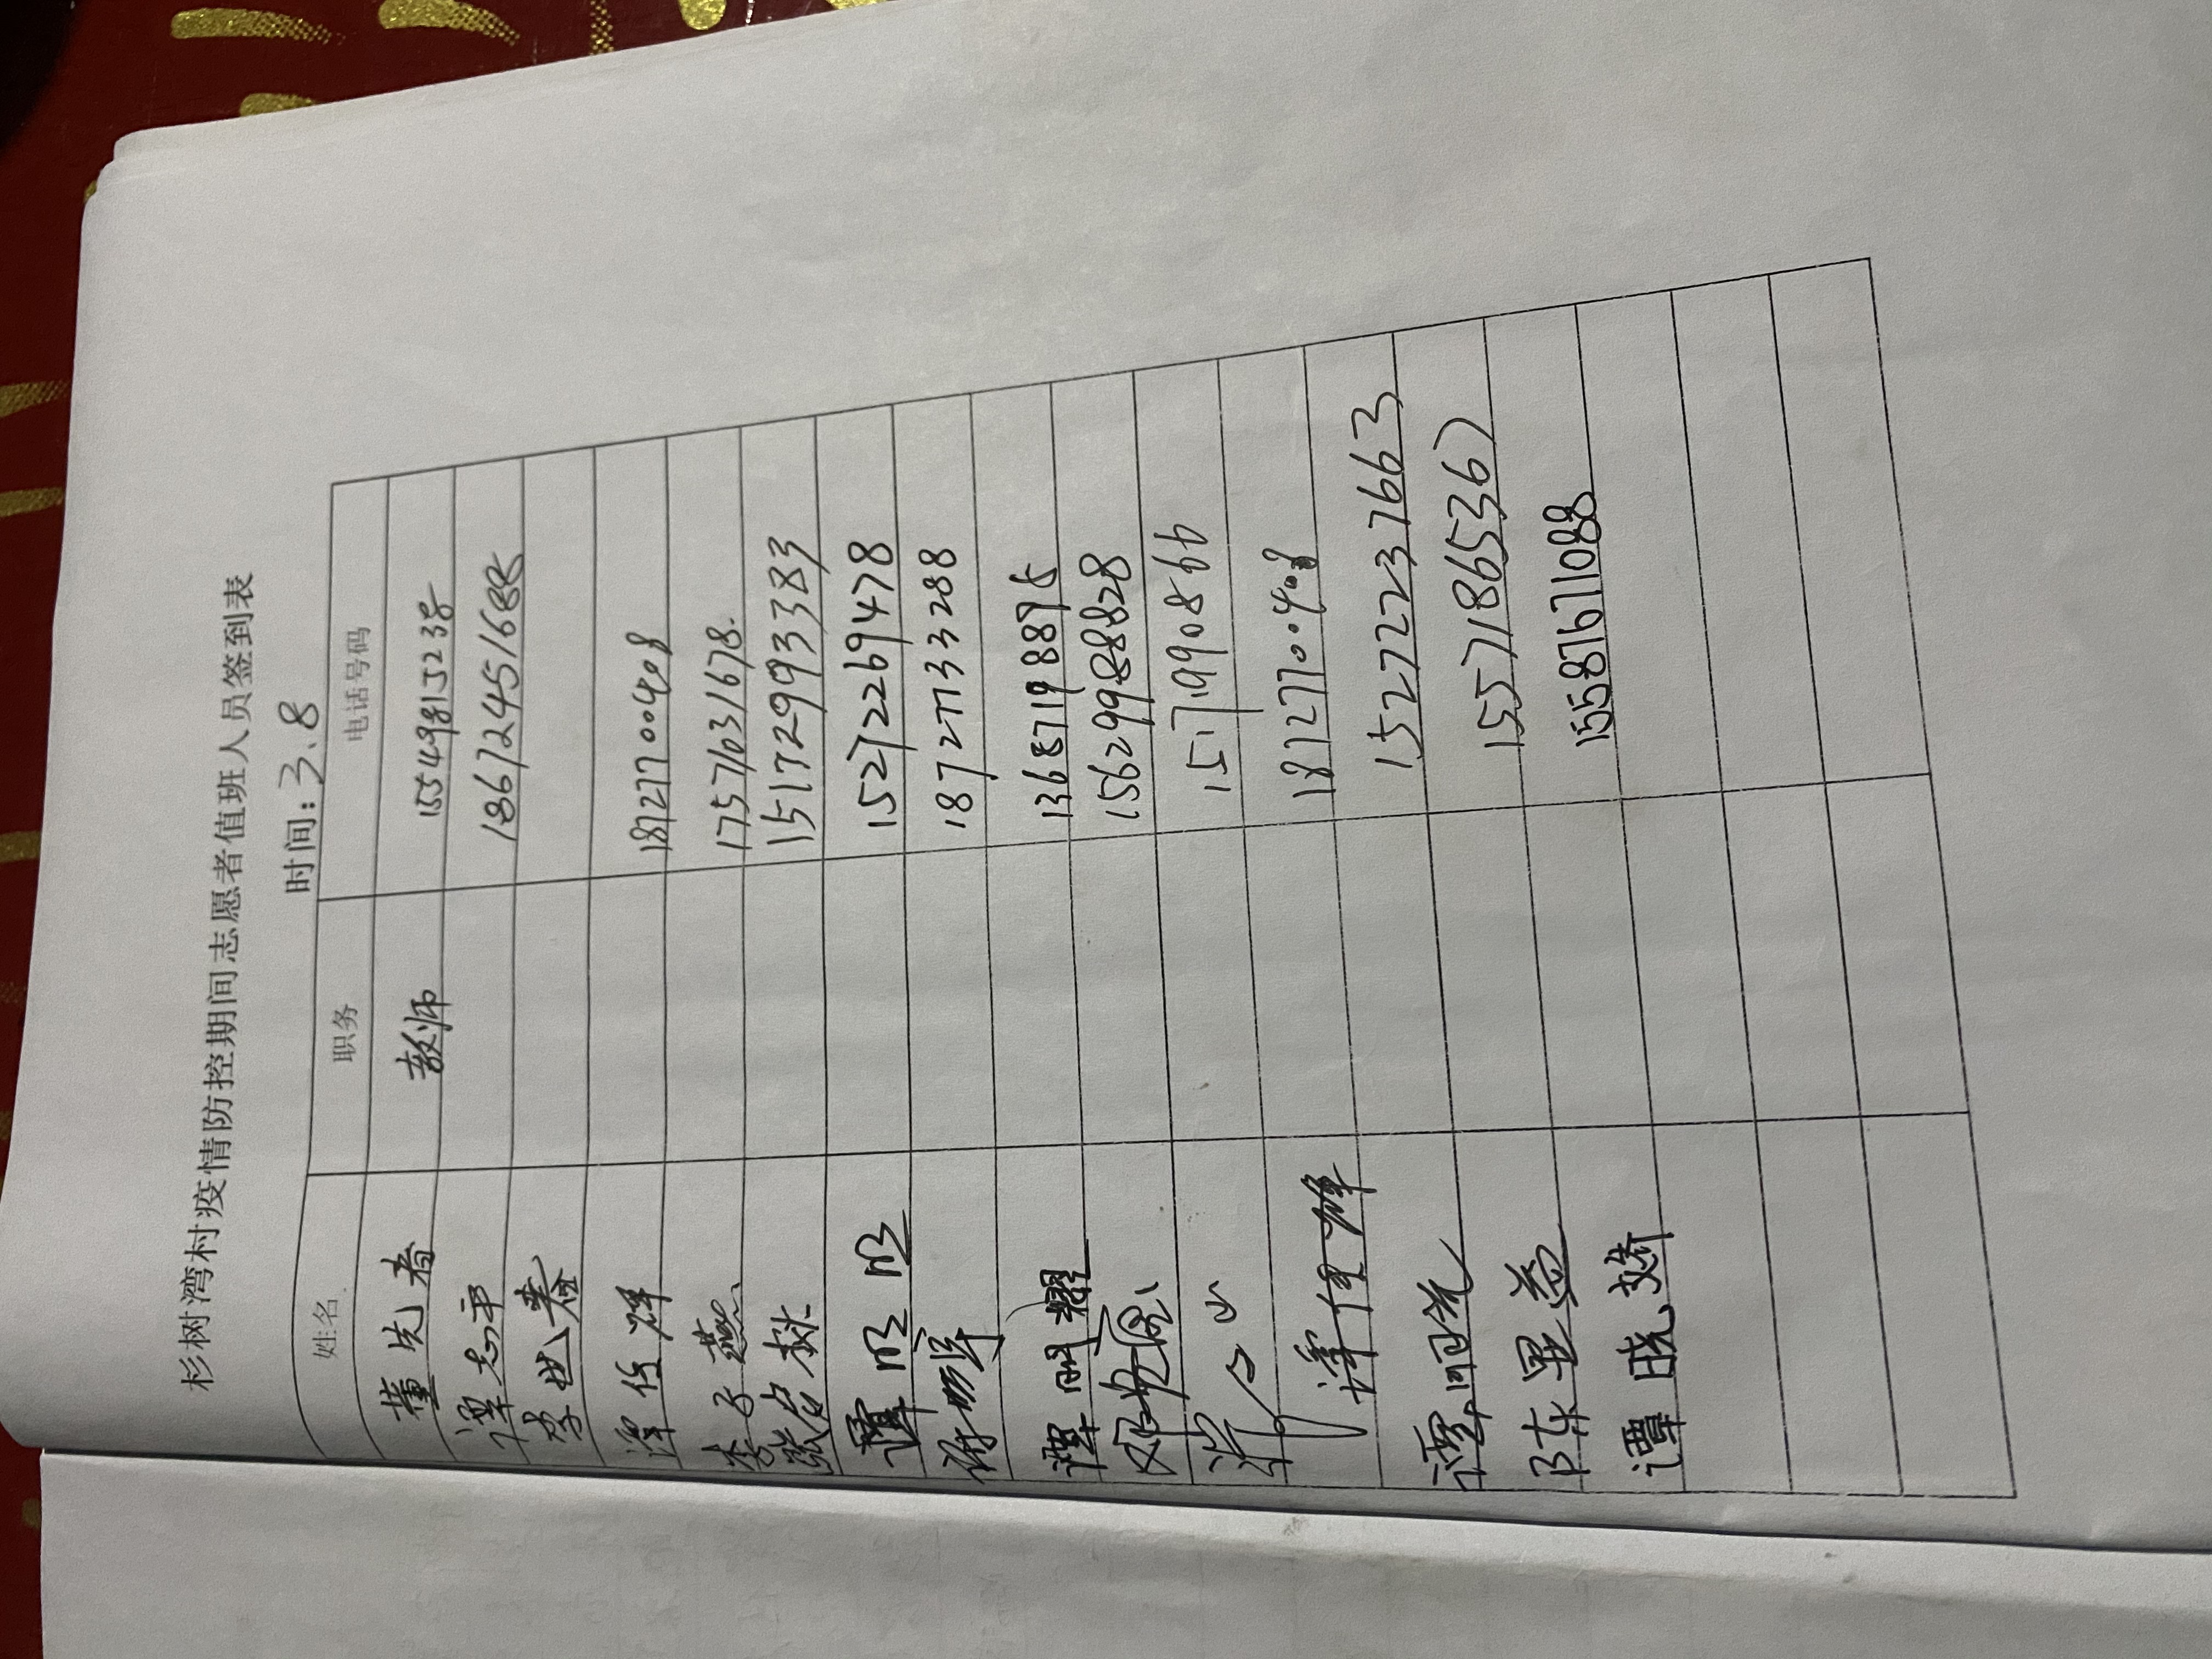 杉树湾村疫情防控期间志愿者值班人员签到表
时间：3.8
姓名 职务 电话号码
董先春 教师 15549815238
谭志平 18672451688
李世
谭 18727700408
李子燕 17571031678.
张宏林 15172993383
谭明明 15272269478
18727733288
谭明耀 13687198875
邓 15629988828
15719990866
谭 18727700408
谭 15272237663
陈显益 15571865367
谭晓娇 15587671088